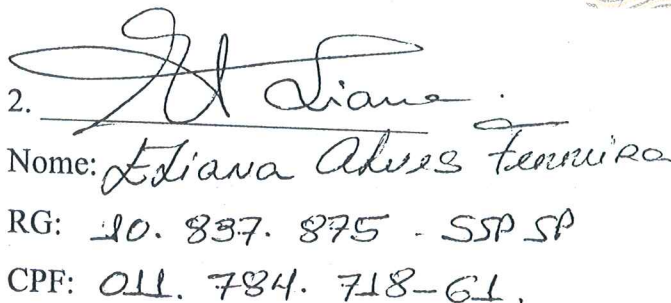 2. Eliana
Nome: Eliana Alves Ferreira
RG: 10.837.875 - SSP SP
CPF: 011.784.718-61.